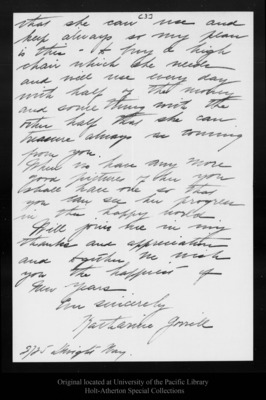 [3]
that she can use and
keep always so my plan
is this - to buy a high
chair which she needs
and will use every day
with half of the money
and some thing with the
other half that she can
treasure always as coming
from you.
When we have any more
good pictures of her you
shall have one so that
you can see her progress
in this happy world.
Will joins me in my
thanks and appreciation
and together we wish
you the happiest of
New Years.
I'm sincerely
Katharine
2125 Way.
Original located at University of the Pacific Library
Holt-Atherton Special Collections